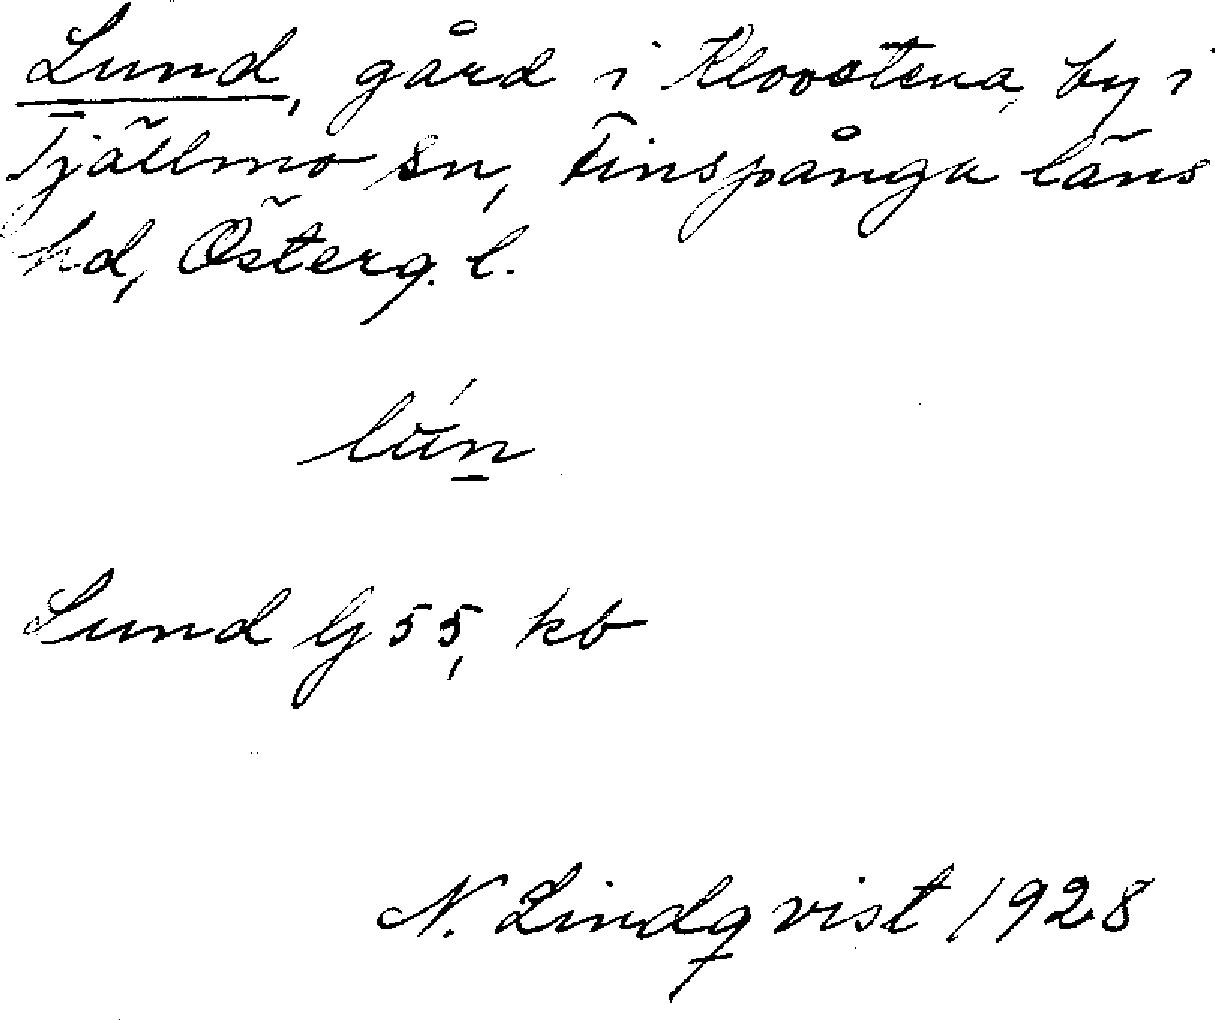 Lund, gård i Klovstena, by i
Tjällmo sn, Finspånga läns
hd, Österg. l.
Lund Gj 55, kb
N. Lindqvist 1928